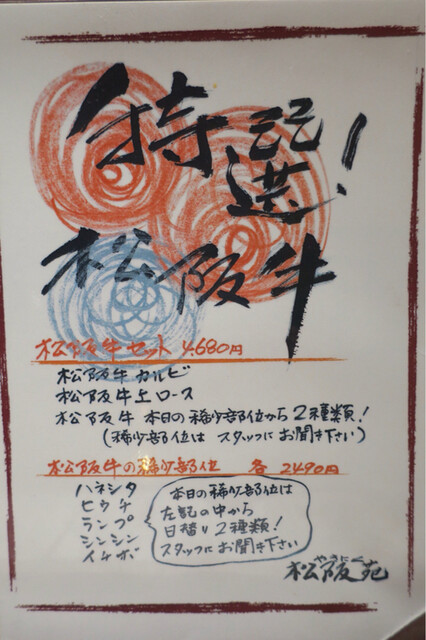 特選!
松阪牛
松阪牛セット 4.680円
松阪牛カルビ
松阪牛上ロース
松阪牛 本日の稀少部位から2種類!
(稀少部位は スタッフにお聞き下さい)
松阪牛の稀少部位 各 2490円
ハネシタ
ヒウチ
ランプ
シンシン
イチボ
本日の稀少部位は
左記の中から
日替り2種類!
スタッフにお聞き下さい
やきにく
松阪苑